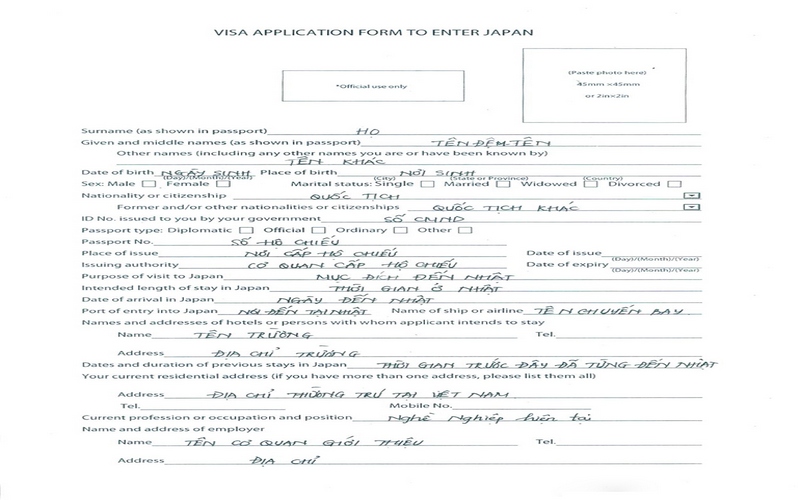 VISA APPLICATION FORM TO ENTER JAPAN
(Paste photo here)
45mm×45mm
or 2in×2in
*Official use only
Surname (as shown in passport) HỌ
Given and middle names (as shown in passport) TÊN ĐỆM TÊN
Other names (including any other names you are or have been known by)
TÊN KHÁC
Date of birth NGÀY SINH Place of birth NƠI SINH
(Day)/(Month)/(Year) (City) (State or Province) (Country)
Sex: Male Female Marital status: Single Married Widowed Divorced
Nationality or citizenship QUỐC TỊCH
Former and/or other nationalities or citizenships QUỐC TỊCH KHÁC
ID No. issued to you by your government SỐ CMND
Passport type: Diplomatic Official Ordinary Other
Passport No. SỐ HỘ CHIẾU
Place of issue NƠI CẤP HỘ CHIẾU Date of issue
(Day)/(Month)/(Year)
Issuing authority CƠ QUAN CẤP HỘ CHIẾU Date of expiry
(Day)/(Month)/(Year)
Purpose of visit to Japan MỤC ĐÍCH ĐẾN NHẬT
Intended length of stay in Japan THỜI GIAN Ở NHẬT
Date of arrival in Japan NGÀY ĐẾN NHẬT
Port of entry into Japan NƠI ĐẾN TẠI NHẬT Name of ship or airline TÊN CHUYẾN BAY
Names and addresses of hotels or persons with whom applicant intends to stay
Name TÊN TRƯỜNG Tel.
Address ĐỊA CHỈ TRƯỜNG
Dates and duration of previous stays in Japan THỜI GIAN TRƯỚC ĐÂY ĐÃ TỪNG ĐẾN NHẬT
Your current residential address (if you have more than one address, please list them all)
Address ĐỊA CHỈ THƯỜNG TRÚ TẠI VIỆT NAM
Tel. Mobile No.
Current profession or occupation and position Nghề Nghiệp hiện tại
Name and address of employer
Name TÊN CƠ QUAN GIỚI THIỆU Tel.
Address ĐỊA CHỈ